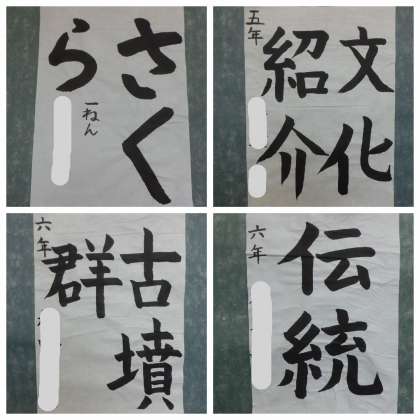 さく
ら
一ねん
文化
紹介
五年
古墳
群
六年
伝統
六年